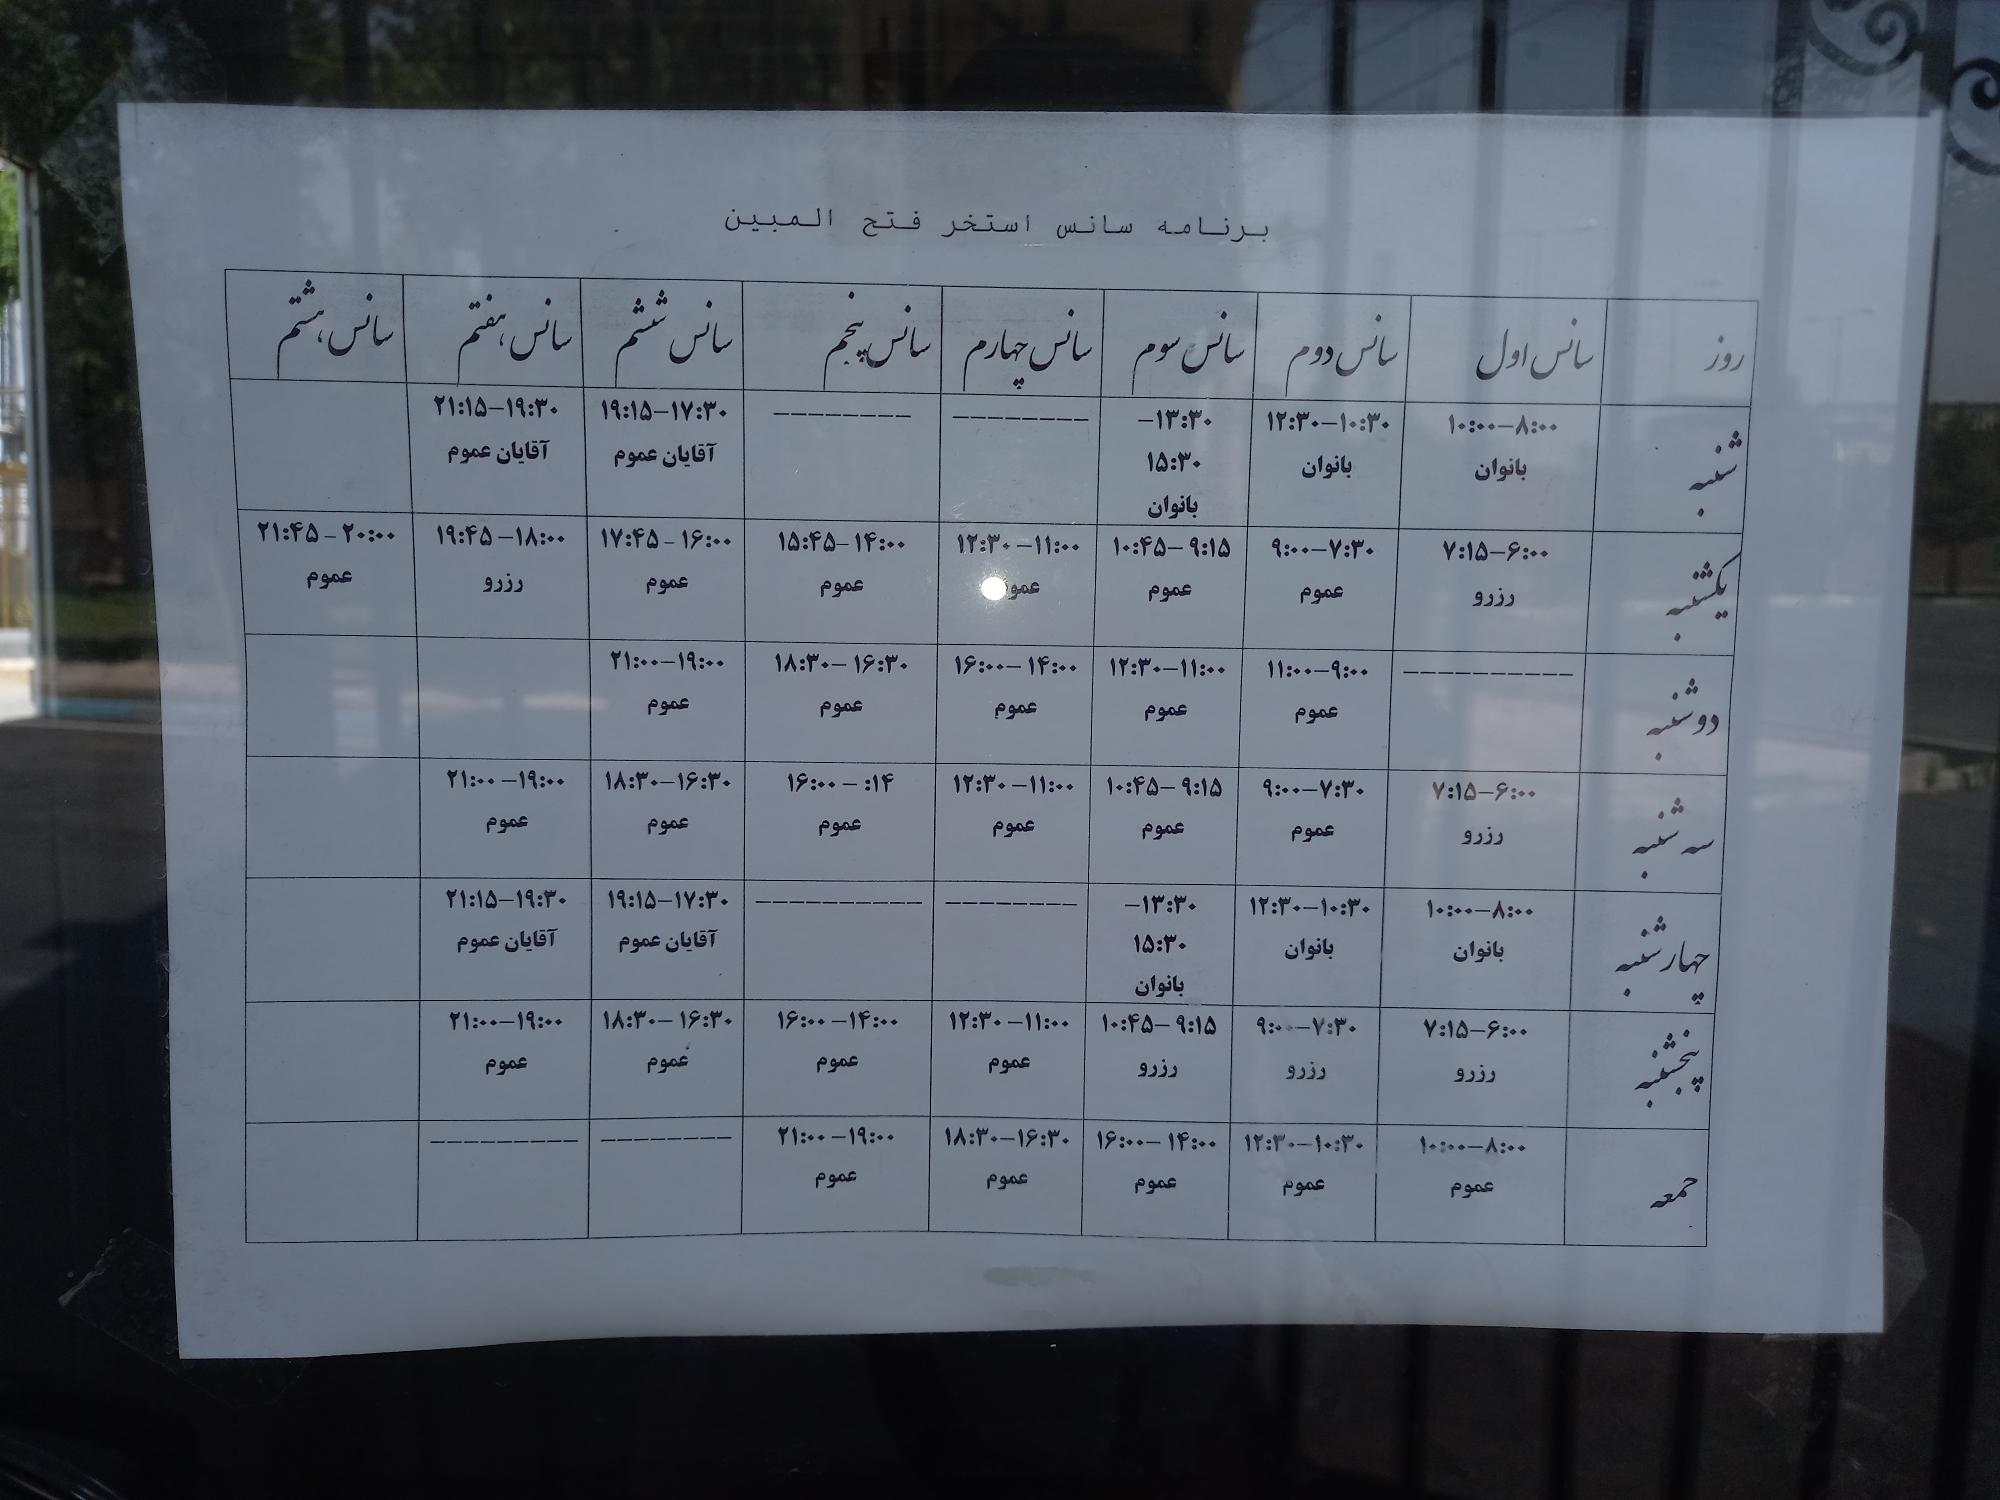 برنامه سانس استخر فتح المبین
روز سانس اول سانس دوم سانس سوم سانس چهارم سانس پنجم سانس ششم سانس هفتم سانس هشتم
شنبه ۸:۰۰–۱۰:۰۰ ۱۰:۳۰–۱۲:۳۰ ۱۳:۳۰– --------- -------- ۱۷:۳۰–۱۹:۱۵ ۱۹:۳۰–۲۱:۱۵
بانوان بانوان ۱۵:۳۰ آقایان عموم آقایان عموم
بانوان
یکشنبه ۶:۰۰–۷:۱۵ ۷:۳۰–۹:۰۰ ۹:۱۵–۱۰:۴۵ ۱۱:۰۰–۱۲:۳۰ ۱۴:۰۰–۱۵:۴۵ ۱۶:۰۰–۱۷:۴۵ ۱۸:۰۰–۱۹:۴۵ ۲۰:۰۰–۲۱:۴۵
رزرو عموم عموم عموم عموم عموم رزرو عموم
دوشنبه ---------- ۹:۰۰–۱۱:۰۰ ۱۱:۰۰–۱۲:۳۰ ۱۴:۰۰–۱۶:۰۰ ۱۶:۳۰–۱۸:۳۰ ۱۹:۰۰–۲۱:۰۰
عموم عموم عموم عموم عموم
سه شنبه ۶:۰۰–۷:۱۵ ۷:۳۰–۹:۰۰ ۹:۱۵–۱۰:۴۵ ۱۱:۰۰–۱۲:۳۰ ۱۴: –۱۶:۰۰ ۱۶:۳۰–۱۸:۳۰ ۱۹:۰۰–۲۱:۰۰
رزرو عموم عموم عموم عموم عموم عموم
چهارشنبه ۸:۰۰–۱۰:۰۰ ۱۰:۳۰–۱۲:۳۰ ۱۳:۳۰– -------- ---------- ۱۷:۳۰–۱۹:۱۵ ۱۹:۳۰–۲۱:۱۵
بانوان بانوان ۱۵:۳۰ آقایان عموم آقایان عموم
بانوان
پنجشنبه ۶:۰۰–۷:۱۵ ۷:۳۰–۹:۰۰ ۹:۱۵–۱۰:۴۵ ۱۱:۰۰–۱۲:۳۰ ۱۴:۰۰–۱۶:۰۰ ۱۶:۳۰–۱۸:۳۰ ۱۹:۰۰–۲۱:۰۰
رزرو رزرو رزرو عموم عموم عموم عموم
جمعه ۸:۰۰–۱۰:۰۰ ۱۰:۳۰–۱۲:۳۰ ۱۴:۰۰–۱۶:۰۰ ۱۶:۳۰–۱۸:۳۰ ۱۹:۰۰–۲۱:۰۰ -------- ---------
عموم عموم عموم عموم عموم